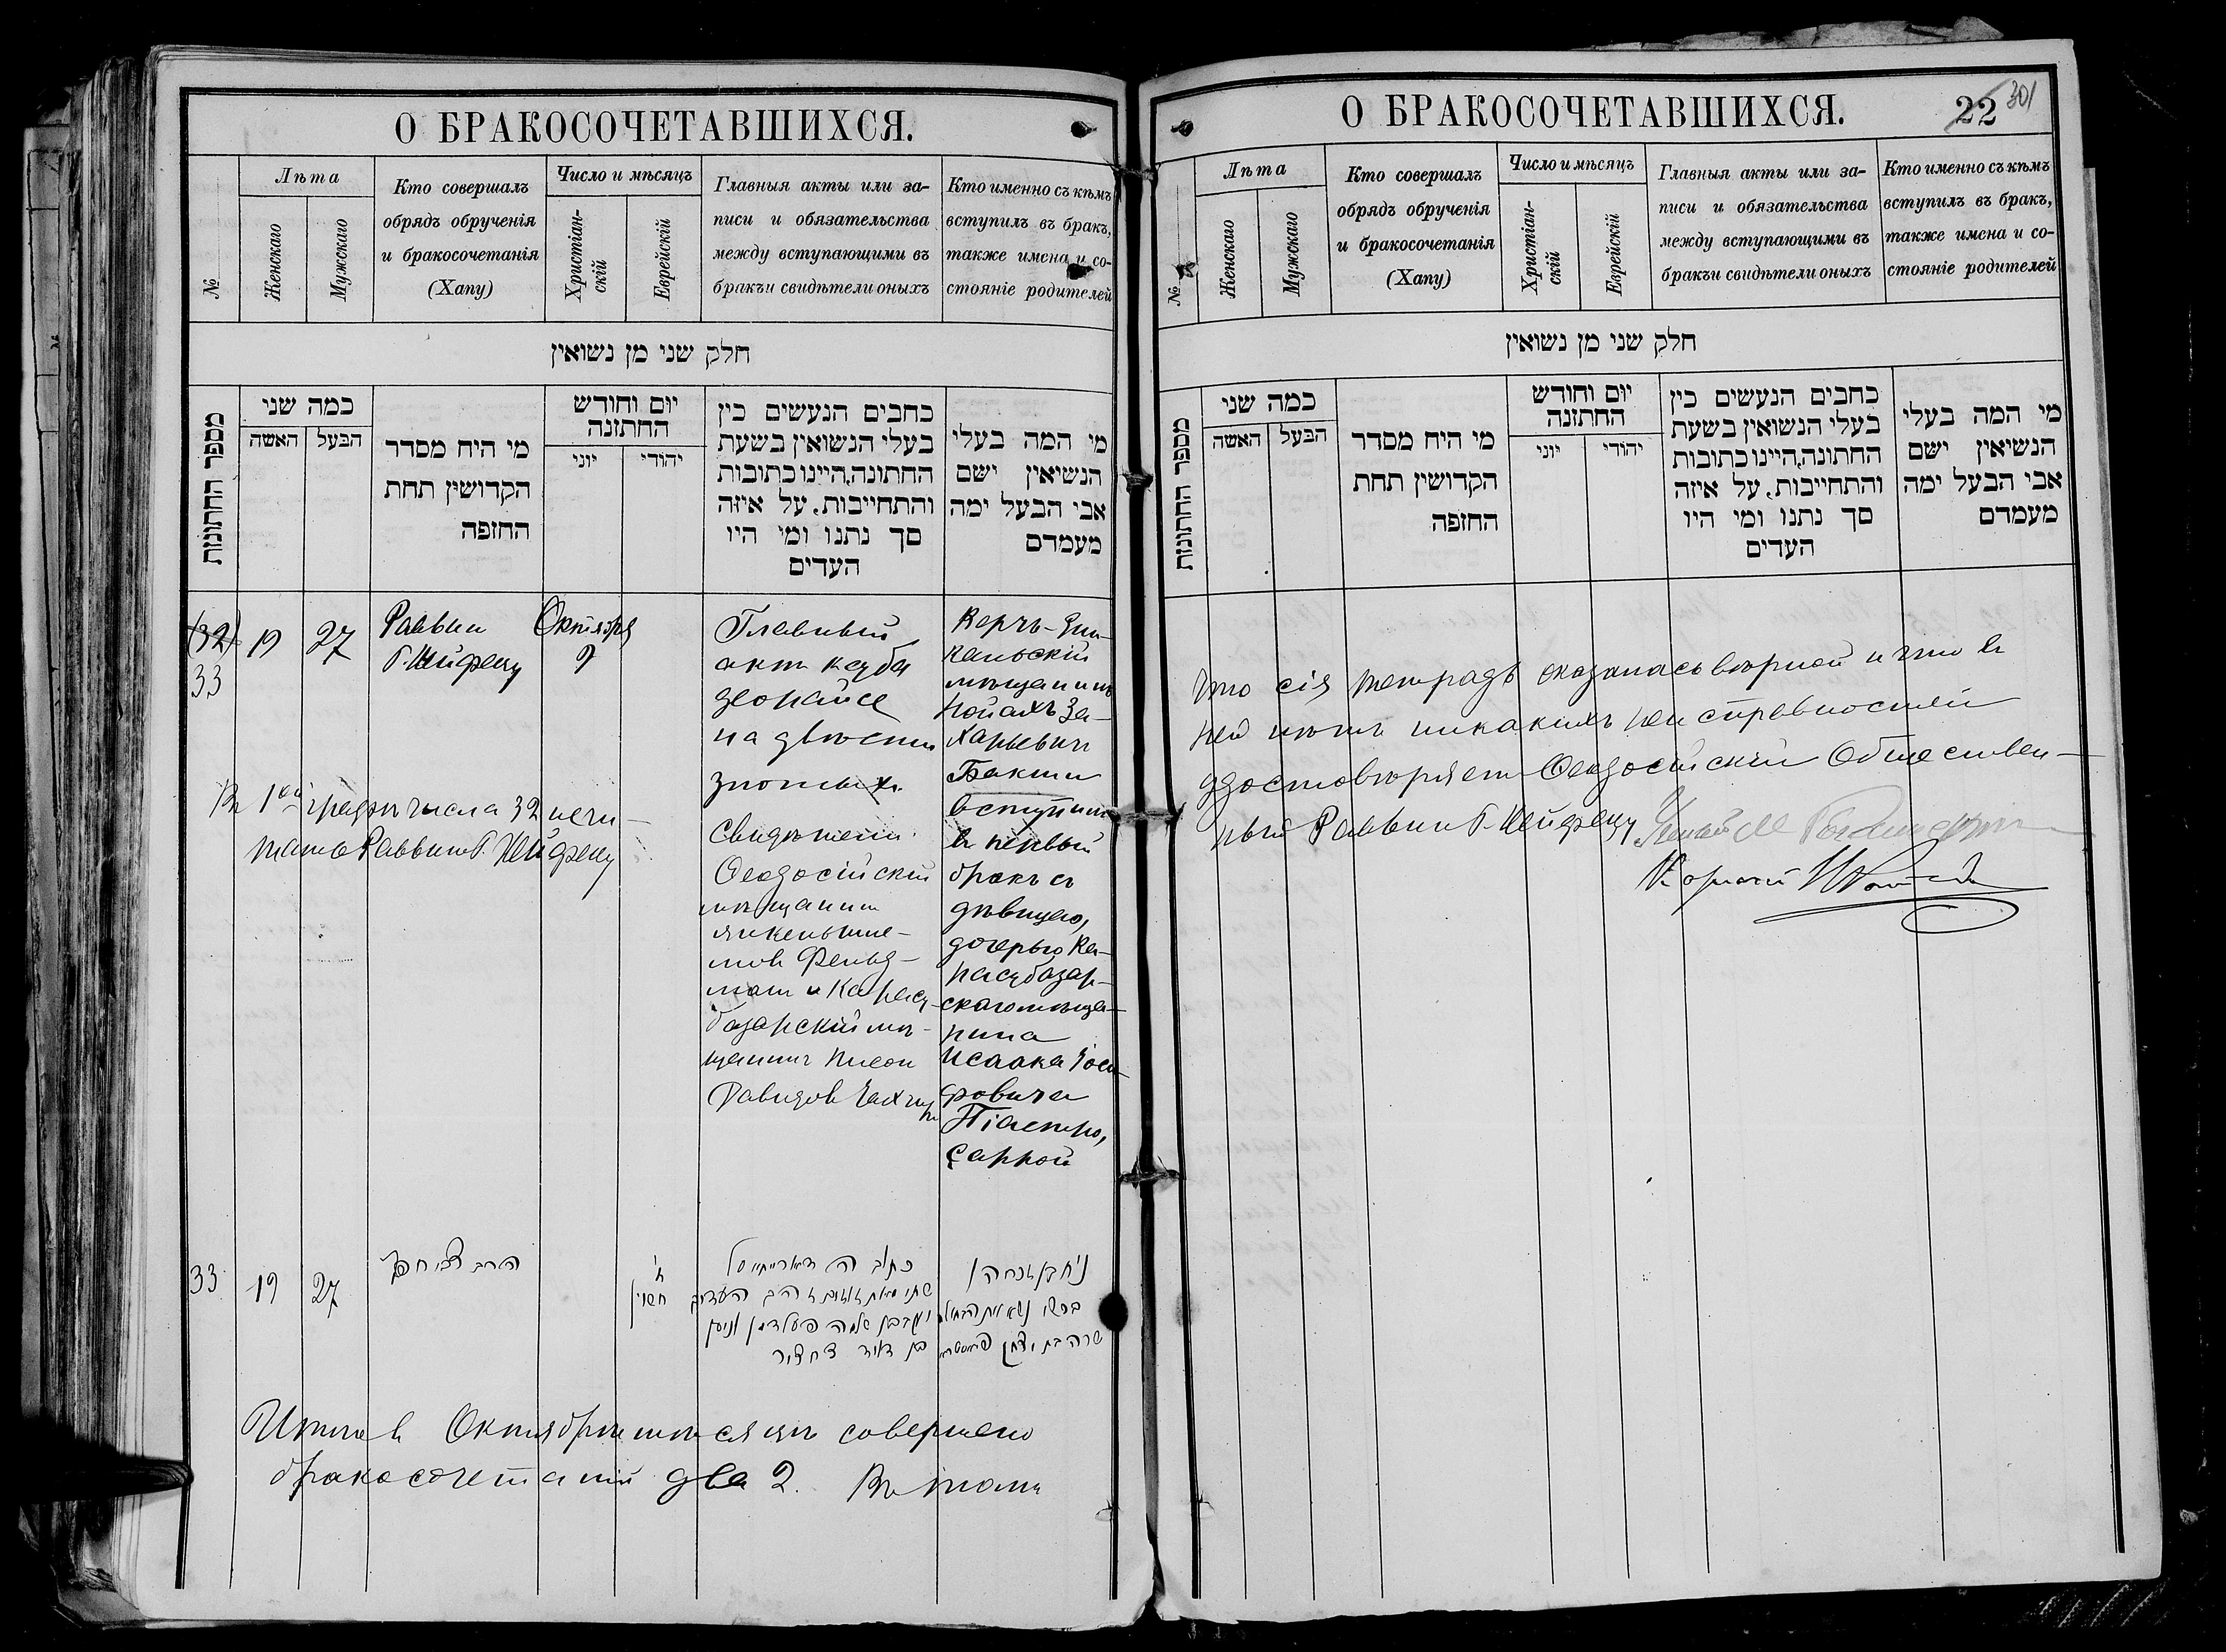 О БРАКОСОЧЕТАВШИХСЯ.
№
Лѣта
Женскаго
Мужскаго
Кто совершалъ
обрядъ обрученія
и бракосочетанія
(Хапу)
Число и мѣсяцъ
Христіан-
скій
Еврейскій
Главныя акты или за-
писи и обязательства
между вступающими въ
бракъи свидѣтели оныхъ
Кто именно съ кѣмъ
вступилъ въ бракъ,
также имена и со-
стояніе родителей
חלק שני מן נשואין
מספר החתונות
כמה שני
האשה
הבעל
מי היח מסדר
הקדושין תחת
החופה
יום וחודש
החתונה
יוני
יהודי
כחבים הנעשים כין
בעלי הנשואין בשעת
החתונה, היינו כתובות
והתחייבות. על איזה
סך נתנו ומי היו
העדים
מי המה בעלי
הנשיאין ישם
אבי הבעל ימה
מעמדם
(32)
33
19
27
Раввин
Г. Нейфельд
Октября
2
Главный
акт кедубa
зеорайсе
на двѣсти
злотых.
Свидѣтели.
Ѳеодосійскій
мѣщанинъ
Янкель Шле-
мов Фельд-
ман и Карасу-
базарскій мѣ-
щанинъ Нисон
Давидов Чахчир
Керчь-Ени-
кальскій
мѣщанинъ
Нойахъ За-
харьевич
Бакши
вступилъ
в первый
бракъ съ
дѣвицею,
дочерью Ка-
расубазар-
скаго мѣща-
нина
Исаака Іоси-
фовича
Піастро,
Саррой
В 1ой графѣ числа 32 нечи-
тать Раввин Г.
33
19
27
הרב
ח'
חשון
כתוב
שתי מאות
שלמה פעלדמן וניסן
בן דוד
נח בן זכריה
בקשי נשא את הבתולה
שרה בת יצחק
Итого в Октябрѣ мѣсяцѣ совершено
бракосочетаній два 2. В том
О БРАКОСОЧЕТАВШИХСЯ.
22
301
№
Лѣта
Женскаго
Мужскаго
Кто совершалъ
обрядъ обрученія
и бракосочетанія
(Хапу)
Число и мѣсяцъ
Христіан-
скій
Еврейскій
Главныя акты или за-
писи и обязательства
между вступающими въ
бракъи свидѣтели оныхъ
Кто именно съ кѣмъ
вступилъ въ бракъ,
также имена и со-
стояніе родителей
חלק שני מן נשואין
מספר החתונות
כמה שני
האשה
הבעל
מי היח מסדר
הקדושין תחת
החופה
יום וחודש
החתונה
יוני
יהודי
כחבים הנעשים כין
בעלי הנשואין בשעת
החתונה, היינו כתובות
והתחייבות. על איזה
סך נתנו ומי היו
העדים
מי המה בעלי
הנשיאין ישם
אבי הבעל ימה
מעמדם
что сія тетрадь оказалась вѣрной и что в
ней нѣтъ никакихъ неисправностей
удостовѣряетъ Ѳеодосійскій Обществен-
ный Раввин Г.